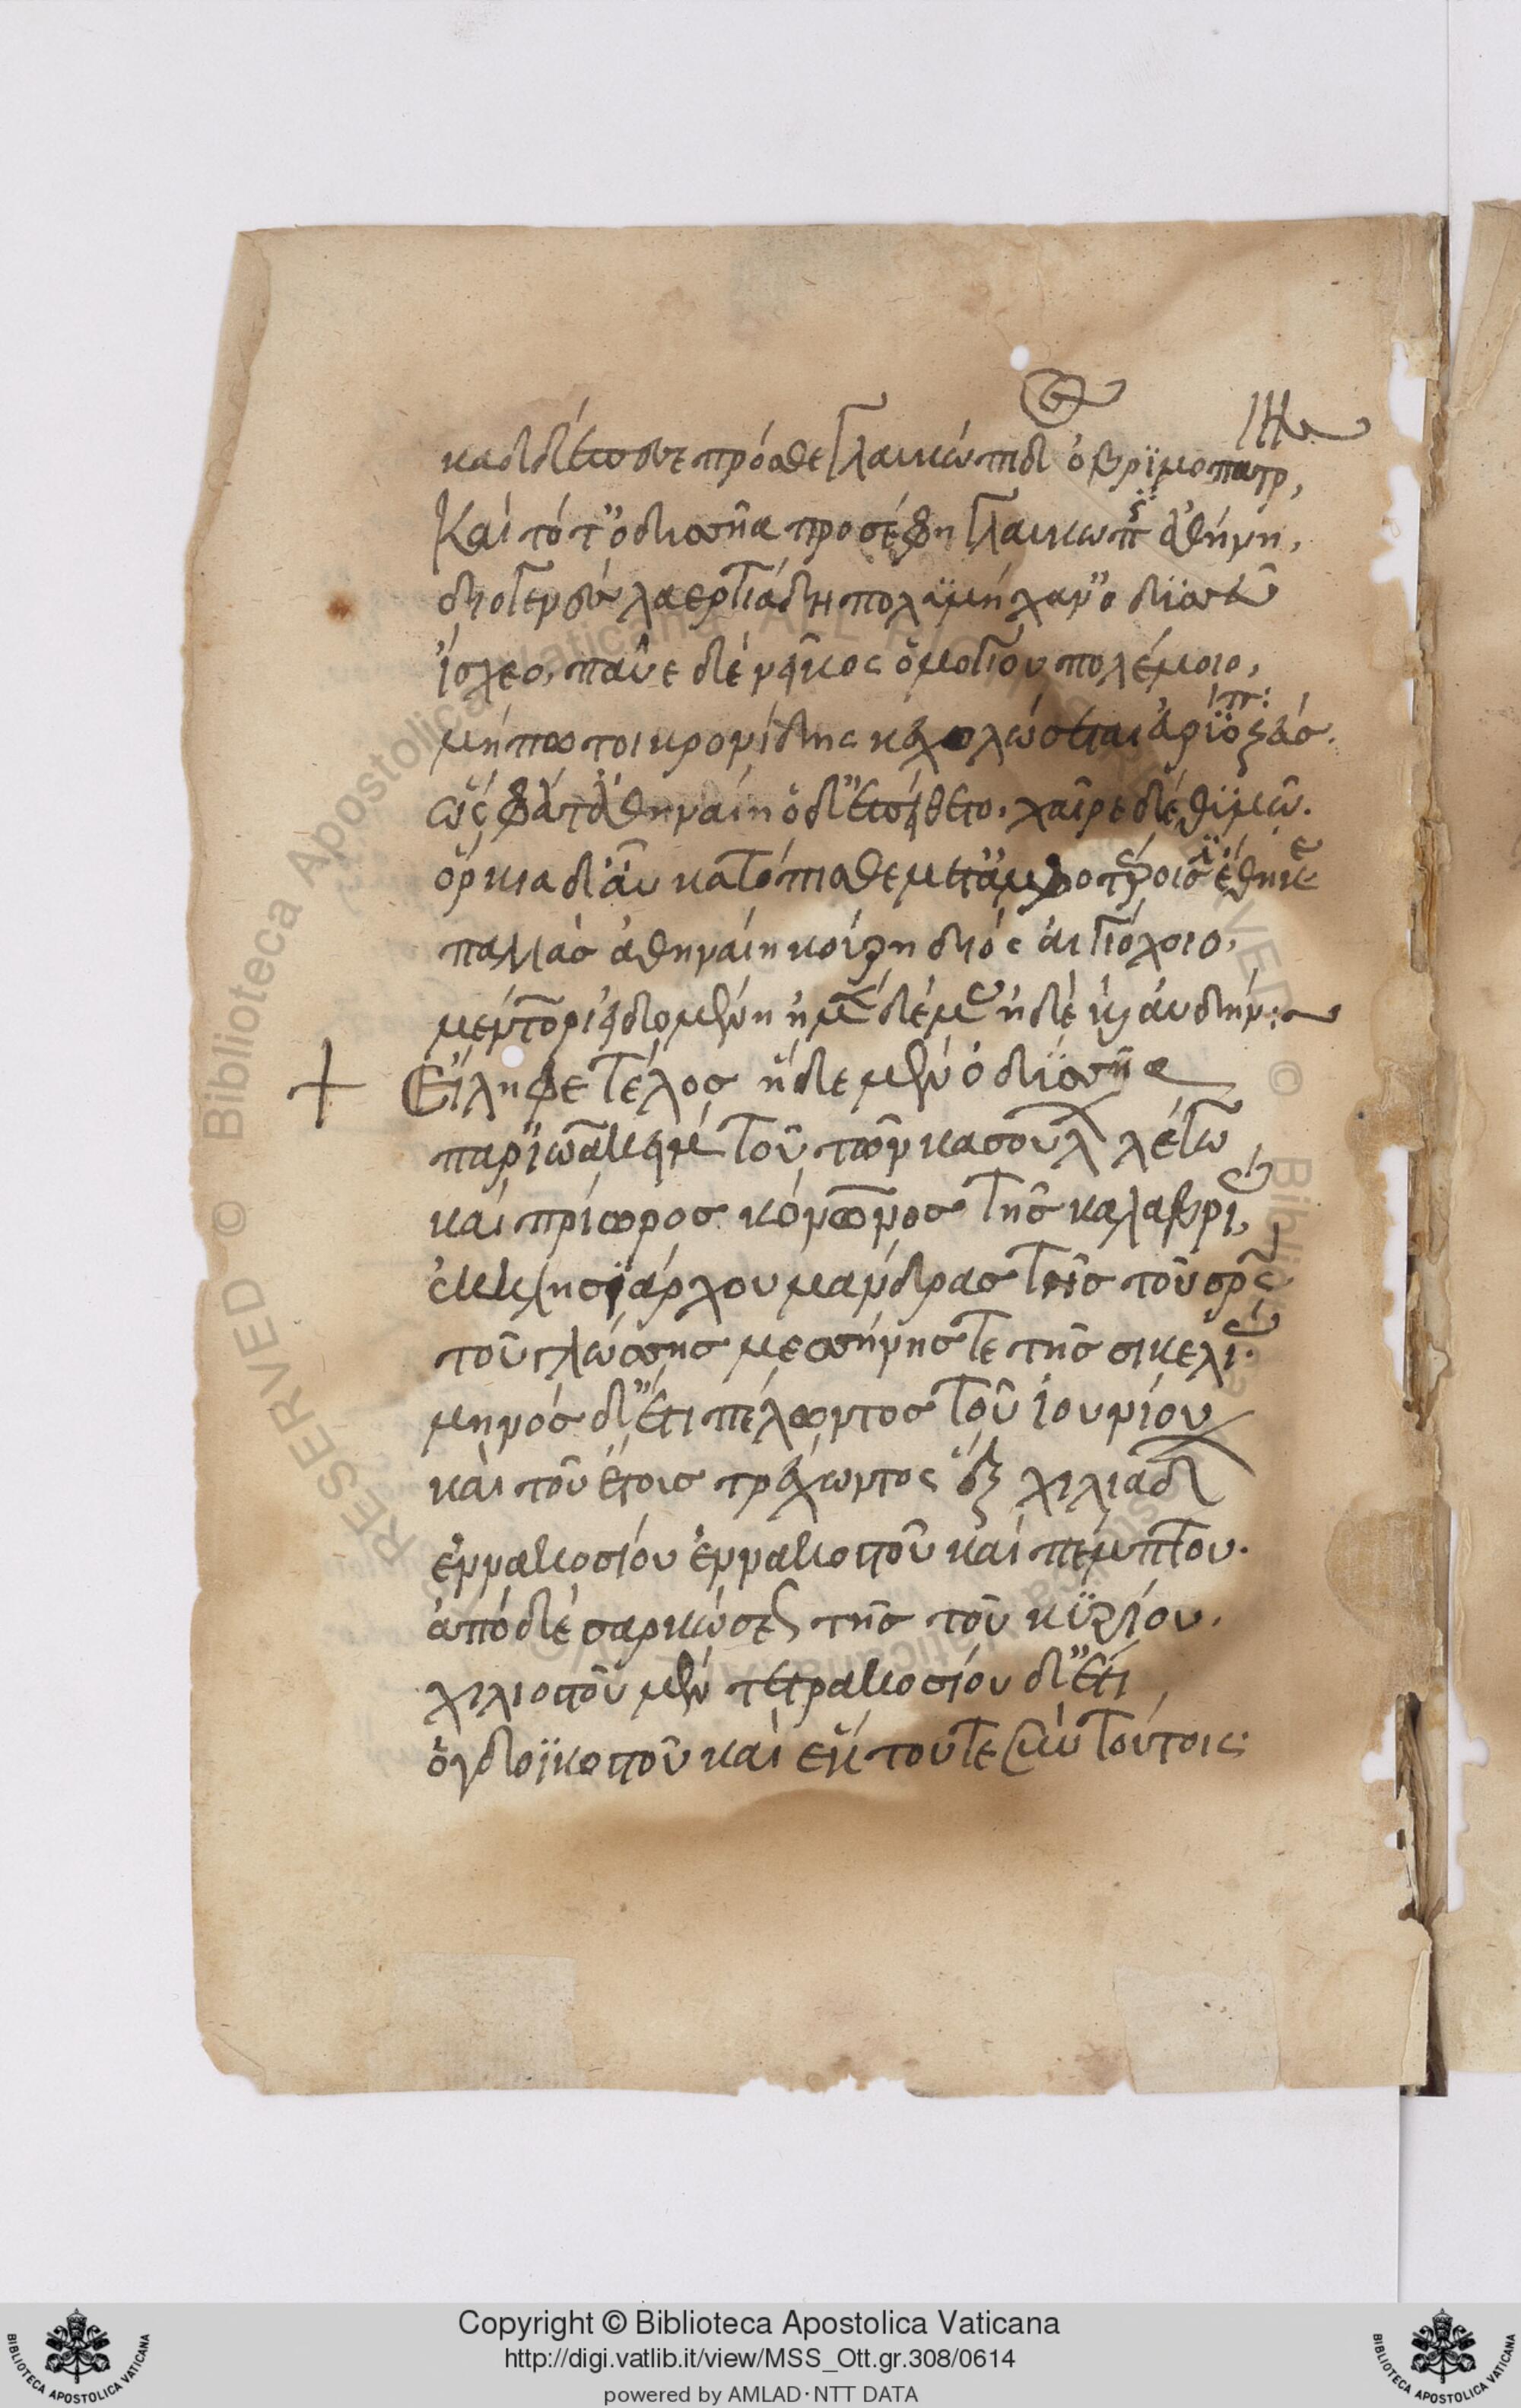 καδδ' ἔπεσε πρόσθε γλαυκώπιδ ὀβρϊμοπάτρης,
Καὶ τότ' ὀδυσῆα προσέφη γλαυκῶπις ἀθήνη,
διογενὲς λαερτιάδη πολυμήχαν' ὀδϋσεῦ
ἴσχεο, παῦε δὲ νεῖκος ὁμοιΐου πολέμοιο,
μήπως τοι κρονίδης κεχολώσεται εὐρύοπα ζεύσ.
ὣς φάτ' ἀθηναίη ὁ δ' ἐπείθετο, χαῖρε δὲ θϋμῶ.
ὅρκια δ' αὖ κατόπισθε μετ' ἀμφοτέροισιν ἔθηκε
παλλὰσ ἀθηναίη κούρη διὸς αἰγιόχοιο,
μέντορι εἰδομένη ἠμὲν δέμας ἠδὲ καὶ αὐδήν:
Εἴληφε τέλοσ ἥδε μὲν ὀδύσσεια
παρ' ἰωάννου τοῦ κασουλ λέγω
καὶ τῆσ καλαβρίασ
μάνδρασ τοῦ σωτῆρος
τοῦ γλώσσησ μεσσήνησ τε τῆσ σικελίασ.
μηνόσ δ' ἔτι πέλοντος τοῦ ἰουνίου
καὶ τοῦ ἔτουσ τρέχοντος ἓξ χιλιάδων
ἐνακοσίου ἐνακοστοῦ καὶ πέμπτου.
ἀπὸ δὲ σαρκώσεως τῆσ τοῦ κϋρίου.
χιλιοστοῦ μὲν τετρακοσίου δ' ἔτι
ὀγδοϊκοστοῦ καὶ ἕκτου τε σὺν τούτοις:
Copyright © Biblioteca Apostolica Vaticana
http://digi.vatlib.it/view/MSS_Ott.gr.308/0614
powered by AMLAD·NTT DATA